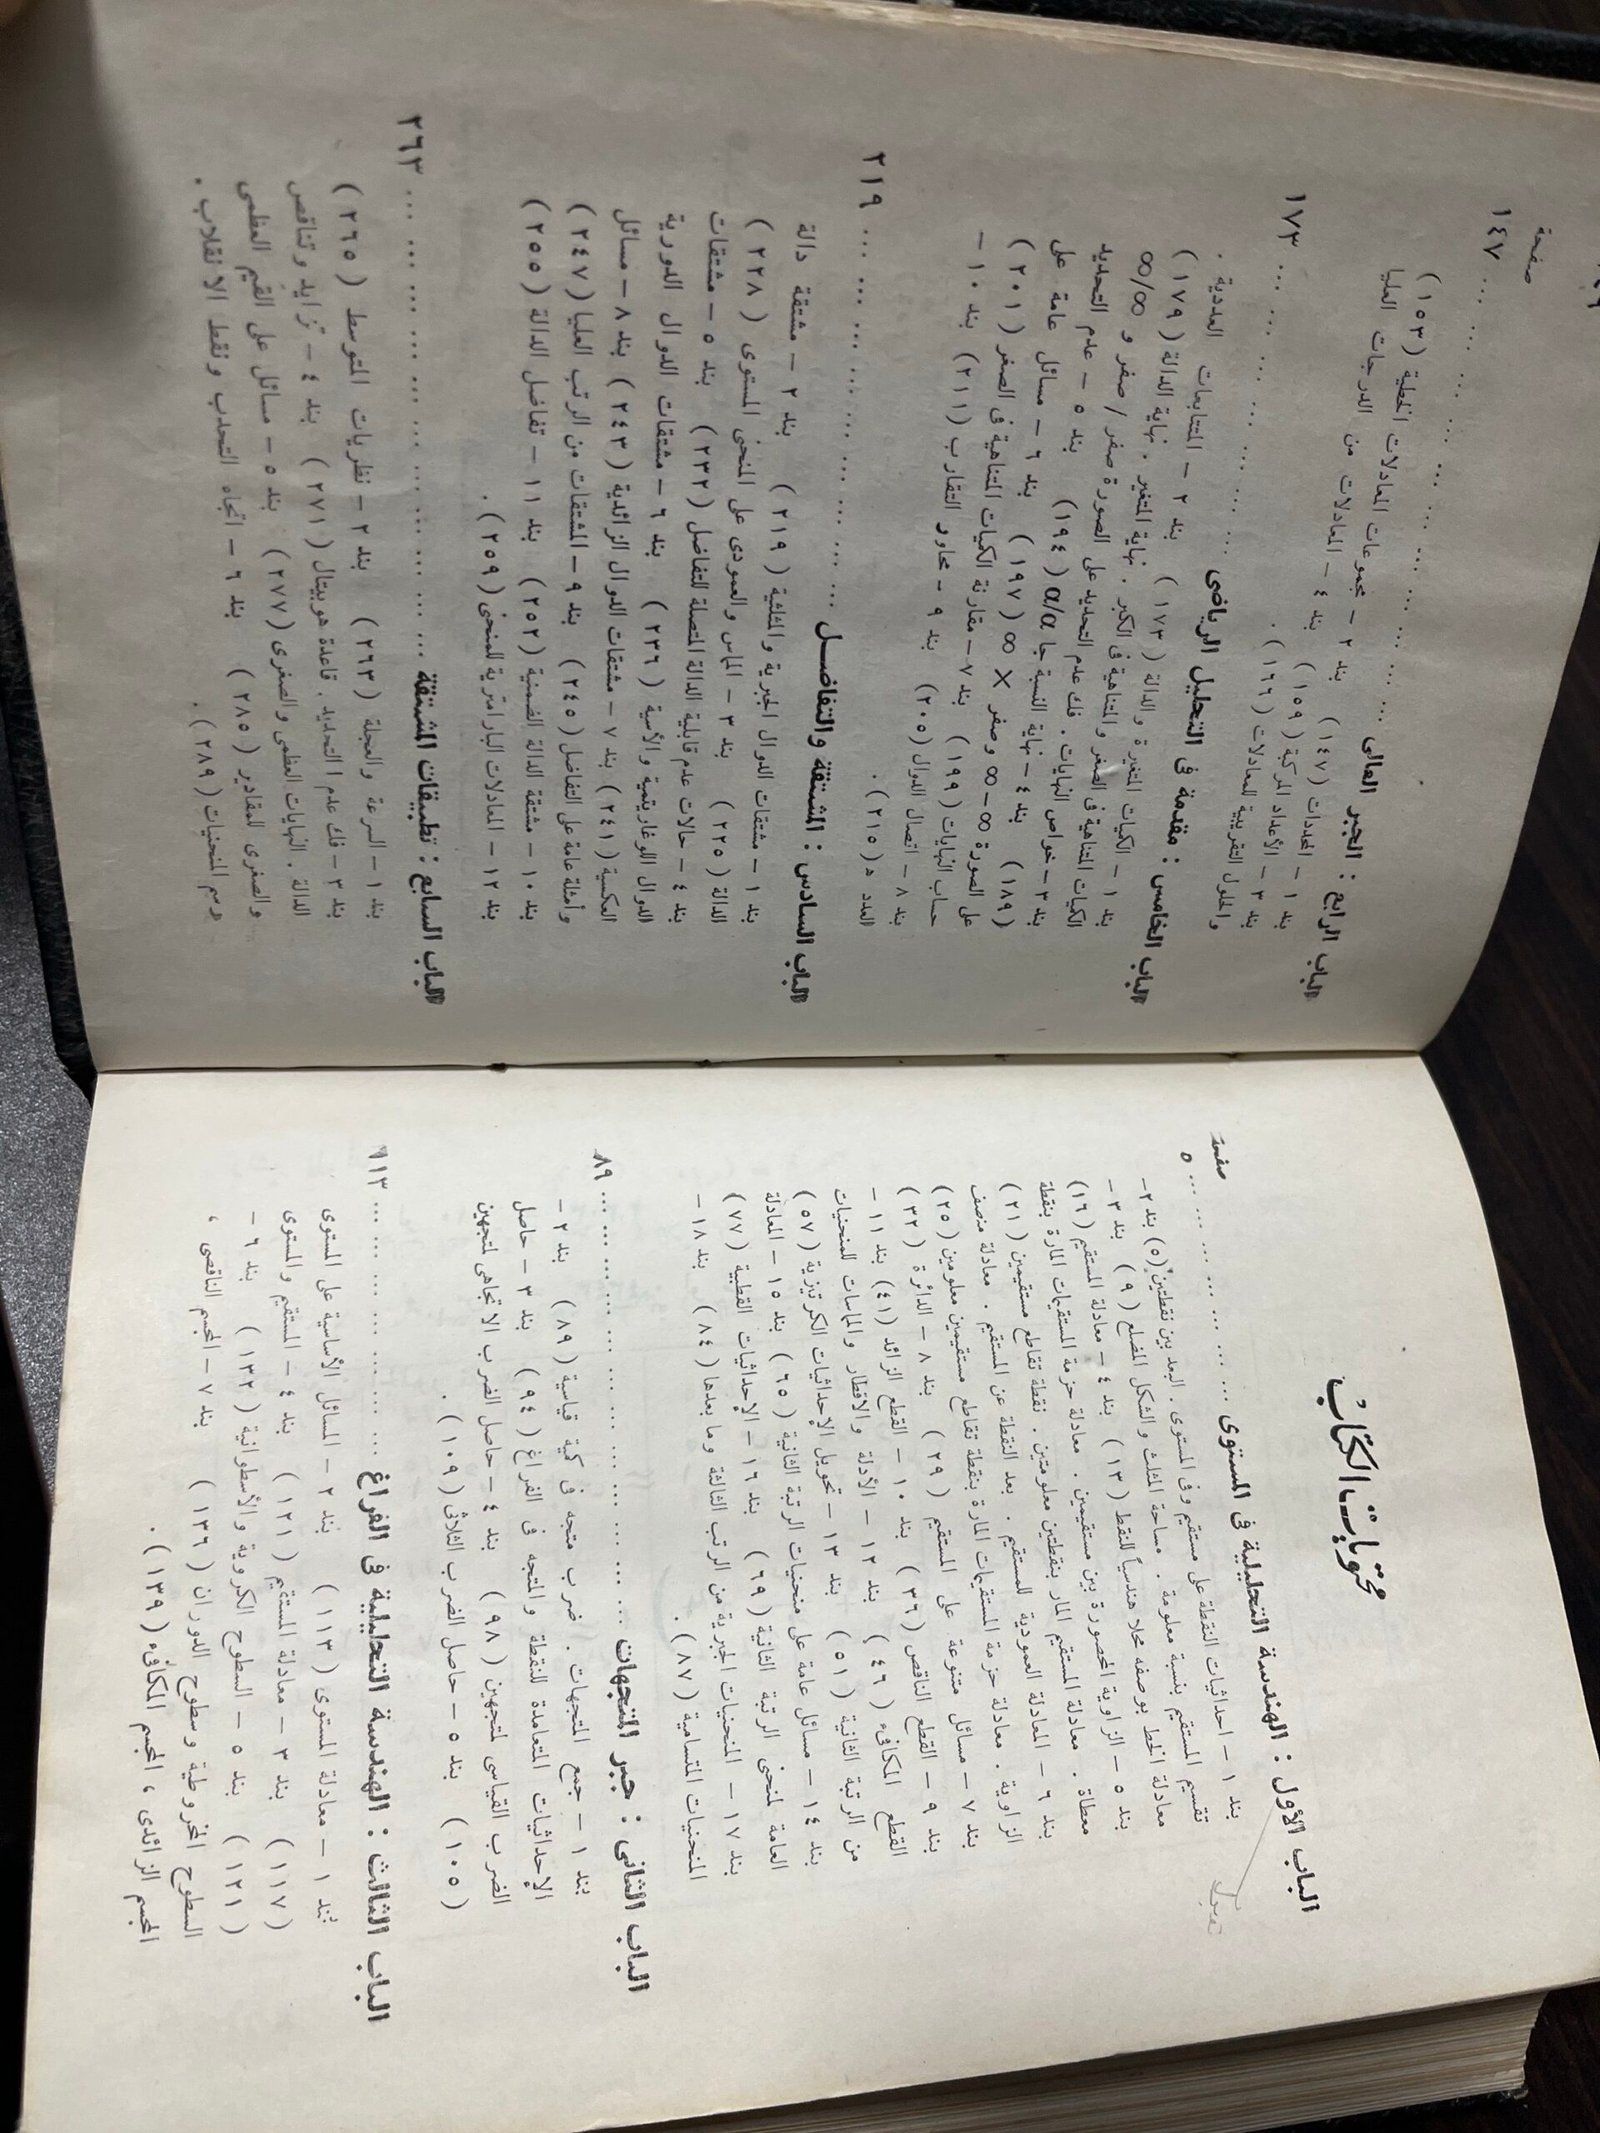 محتويات الكتاب
صفحة
الباب الأول : الهندسة التحليلية فى المستوى ... ... ... ... ... ... ٥
بند ١ – احداثيات النقطة على مستقيم وفى المستوى . البعد بين نقطتين (٥) بند ٢ –
تقسيم المستقيم بنسبة معلومة . مساحة المثلث والشكل المضلع ( ٩ ) بند ٣ –
معادلة الخط بوصفه محلا هندسياً للنقط ( ١٣ ) بند ٤ – معادلة المستقيم ( ١٦ )
بند ٥ – الزاوية المحصورة بين مستقيمين . معادلة حزمة المستقيمات المارة بنقطة
معطاة . معادلة المستقيم المار بنقطتين معلومتين . نقطة تقاطع مستقيمين ( ٢١ )
بند ٦ – المعادلة العمودية للمستقيم . بعد النقطة عن المستقيم . معادلة منصف
الزاوية . معادلة حزمة المستقيمات المارة بنقطة تقاطع مستقيمين معلومين ( ٢٥ )
بند ٧ – مسائل متنوعة على المستقيم ( ٢٩ ) بند ٨ – الدائرة ( ٣٢ )
بند ٩ – القطع الناقص ( ٣٦ ) بند ١٠ – القطع الزائد ( ٤١ ) بند ١١ –
القطع المكافىء ( ٤٦ ) بند ١٢ – الأدلة والاقطار والمماسات للمنحنيات
من الرتبة الثانية ( ٥١ ) بند ١٣ – تحويل الإحداثيات الكرتيزية ( ٥٧ )
بند ١٤ – مسائل عامة على منحنيات الرتبة الثانية ( ٦٥ ) بند ١٥ – المعادلة
العامة لمنحنى الرتبة الثانية ( ٦٩ ) بند ١٦ – الإحداثيات القطبية ( ٧٧ )
بند ١٧ – المنحنيات الجبرية من الرتب الثالثة وما بعدها ( ٨٤ ) بند ١٨ –
المنحنيات المتسامية ( ٨٧ ) .
الباب الثانى : جبر المتجهات ... ... ... ... ... ... ... ... ... ٨٩
بند ١ – جمع المتجهات . ضرب متجه فى كمية قياسية ( ٨٩ ) بند ٢ –
الإحداثيات المتعامدة للنقطة والمتجه فى الفراغ ( ٩٤ ) بند ٣ – حاصل
الضرب القياسى لمتجهين ( ٩٨ ) بند ٤ – حاصل الضرب الاتجاهى لمتجهين
( ١٠٥ ) بند ٥ – حاصل الضرب الثلاثى ( ١٠٩ ) .
الباب الثالث : الهندسة التحليلية فى الفراغ ... ... ... ... ... ... ١١٣
بند ١ – معادلة المستوى ( ١١٣ ) بند ٢ – المسائل الأساسية على المستوى
( ١١٧ ) بند ٣ – معادلة المستقيم ( ١٢١ ) بند ٤ – المستقيم والمستوى
( ١٢١ ) بند ٥ – السطوح الكروية والأسطوانية ( ١٣٢ ) بند ٦ –
السطوح المخروطية وسطوح الدوران ( ١٣٦ ) بند ٧ – المجسم الناقصى ،
المجسم الزائدى ، المجسم المكافىء ( ١٣٩ ) .
صفحة
الباب الرابع : الجبر العالى ... ... ... ... ... ... ... ... ... ١٤٧
بند ١ – المحددات ( ١٤٧ ) بند ٢ – مجموعات المعادلات الخطية ( ١٥٣ )
بند ٣ – الأعداد المركبة ( ١٥٩ ) بند ٤ – المعادلات من الدرجات العليا
والحلول التقريبية للمعادلات ( ١٦٦ ) .
الباب الخامس : مقدمة فى التحليل الرياضى ... ... ... ... ... ... ١٧٣
بند ١ – الكميات المتغيرة والدالة ( ١٧٣ ) بند ٢ – المتتابعات العددية .
الكميات المتناهية فى الصغر والمتناهية فى الكبر . نهاية المتغير . نهاية الدالة ( ١٧٩ )
بند ٣ – خواص النهايات . فك عدم التحديد على الصورة صفر / صفر و ∞/∞
( ١٨٩ ) بند ٤ – نهاية النسبة جا α/α ( ١٩٤ ) بند ٥ – عدم التحديد
على الصورة ∞ – ∞ وصفر × ∞ ( ١٩٧ ) بند ٦ – مسائل عامة على
حساب النهايات ( ١٩٩ ) بند ٧ – مقارنة الكميات المتناهية فى الصغر ( ٢٠١ )
بند ٨ – اتصال الدوال ( ٢٠٥ ) بند ٩ – محاور التقارب ( ٢١١ ) بند ١٠ –
العدد ه ( ٢١٥ ) .
الباب السادس : المشتقة والتفاضل ... ... ... ... ... ... ... ... ٢١٩
بند ١ – مشتقات الدوال الجبرية والمثلثية ( ٢١٩ ) بند ٢ – مشتقة دالة
الدالة ( ٢٢٥ ) بند ٣ – المماس والعمودى على المنحنى المستوى ( ٢٢٨ )
بند ٤ – حالات عدم قابلية الدالة المتصلة للتفاضل ( ٢٣٢ ) بند ٥ – مشتقات
الدوال اللوغاريتمية والأسية ( ٢٣٦ ) بند ٦ – مشتقات الدوال الدورية
العكسية ( ٢٤١ ) بند ٧ – مشتقات الدوال الزائدية ( ٢٤٣ ) بند ٨ – مسائل
وأمثلة عامة على التفاضل ( ٢٤٥ ) بند ٩ – المشتقات من الرتب العليا ( ٢٤٧ )
بند ١٠ – مشتقة الدالة الضمنية ( ٢٥٢ ) بند ١١ – تفاضل الدالة ( ٢٥٥ )
بند ١٢ – المعادلات البارامترية للمنحنى ( ٢٥٩ ) .
الباب السابع : تطبيقات المشتقة ... ... ... ... ... ... ... ... ... ٢٦٣
بند ١ – السرعة والعجلة ( ٢٦٣ ) بند ٢ – نظريات المتوسط ( ٢٦٥ )
بند ٣ – فك عدم التحديد . قاعدة هوبيتال ( ٢٧١ ) بند ٤ – تزايد وتناقص
الدالة . النهايات العظمى والصغرى ( ٢٧٧ ) بند ٥ – مسائل على القيم العظمى
والصغرى للمقادير ( ٢٨٥ ) بند ٦ – اتجاه التحدب ونقط الانقلاب .
رسم المنحنيات ( ٢٨٩ ) .